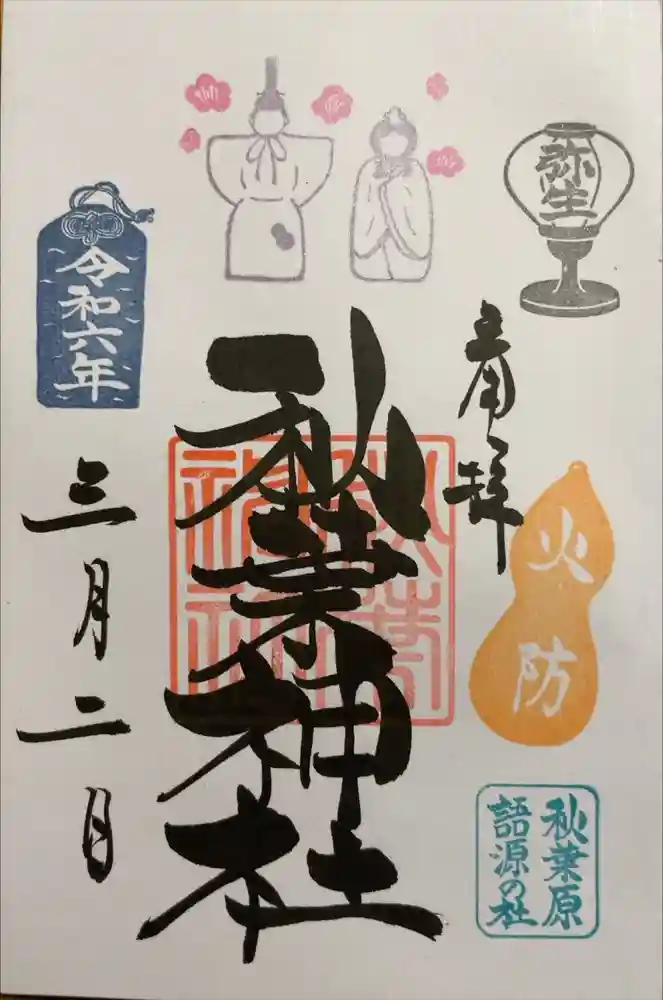 弥生
奉拝
火防
秋葉原
語源の社
秋葉神社
令和六年
三月二日